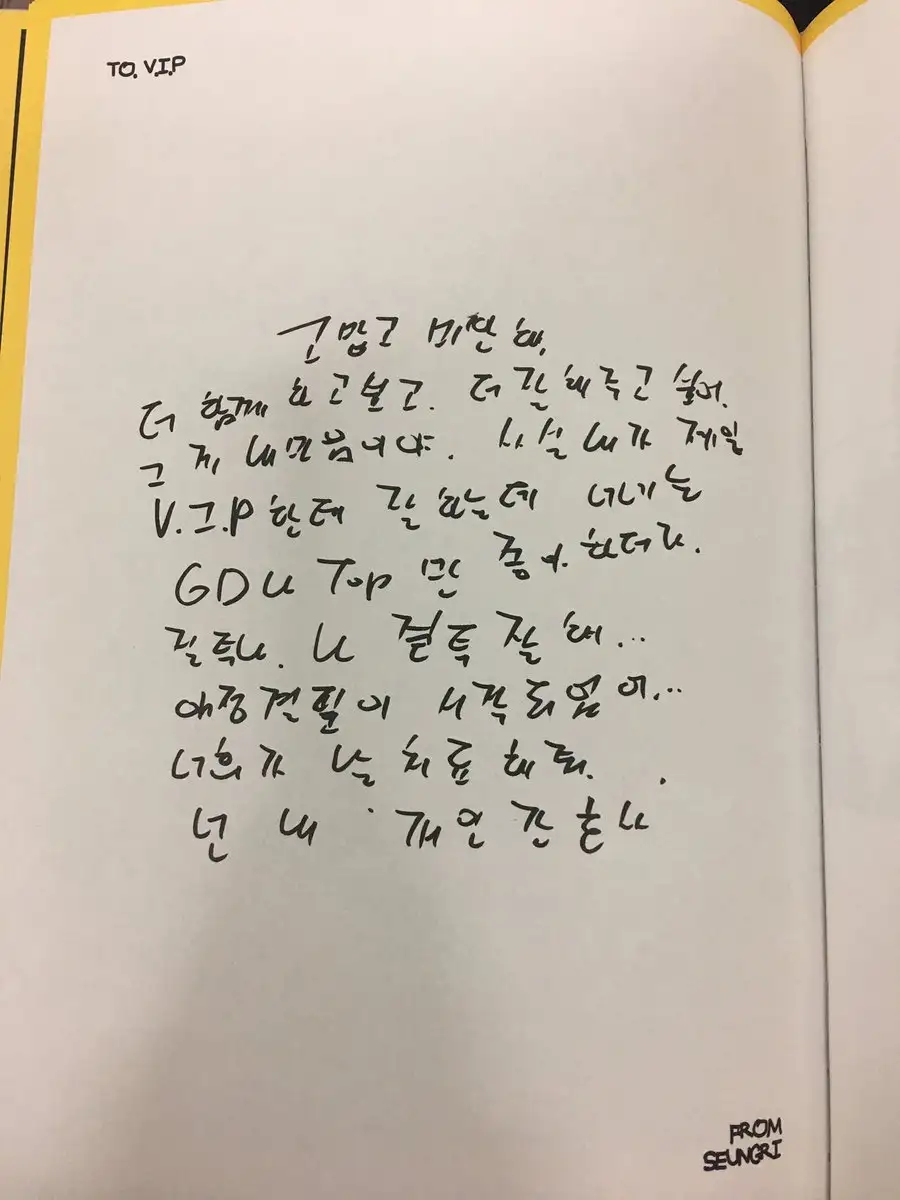 TO. V.I.P
고맙고 미안해.
더 함께 하고싶고. 더 잘해주고 싶어.
그게 내마음이야. 사실 내가 제일
V.I.P한테 잘하는데 너네는
GD나 TOP만 좋아하더라.
질투나. 나 질투 잘해...
애정결핍이 시작되었어...
너희가 날 치료해줘.
넌 내 개인간호사
FROM
SEUNGRI